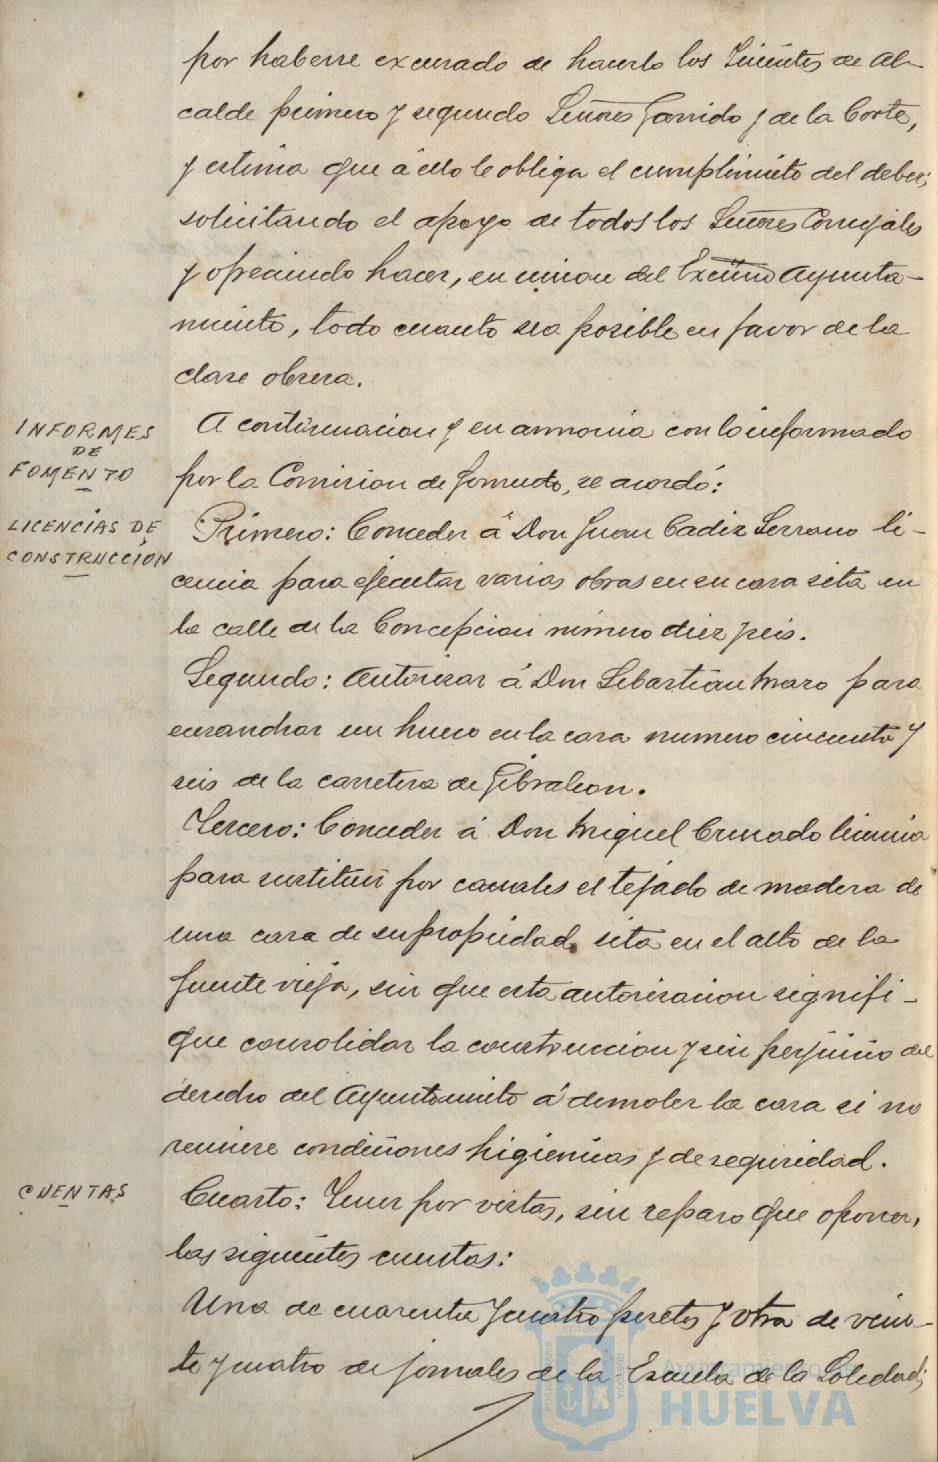 por haberse excusado de hacerlo los Tenientes de Al-
calde primero y segundo Señores Garrido y de la Corte,
y estima que á ello le obliga el cumplimiento del deber;
solicitando el apoyo de todos los Señores Concejales
y ofreciendo hacer, en union del Excmo Ayunta-
miento, todo cuanto sea posible en favor de la
clase obrera.
INFORMES
DE
FOMENTO
A continuacion y en armonia con lo informado
por la Comision de Fomento, se acordó:
LICENCIAS DE
CONSTRUCCION
Primero: Conceder á Don Juan Cadiz Serrano li-
cencia para ejecutar varias obras en su casa sita en
la calle de la Concepcion número diez y seis.
Segundo: Autorizar á Don Sebastián Mazo para
ensanchar un hueco en la casa numero cincuenta y
seis de la carretera de Gibraleon.
Tercero: Conceder á Don Miguel Cruzado licencia
para sustituir por canales el tejado de madera de
una casa de su propiedad, sita en el alto de la
fuente vieja, sin que esta autorizacion signifi-
que consolidar la construccion y sin perjuicio del
derecho del Ayuntamiento á demoler la casa si no
reuniere condiciones higienicas y de seguridad.
CUENTAS
Cuarto: Tener por vistas, sin reparo que oponer,
las siguientes cuentas:
Una de cuarenta y cuatro pesetas y otra de vein-
te y cuatro de jornales de la Escuela de la Soledad;
Ayuntamiento de
HUELVA